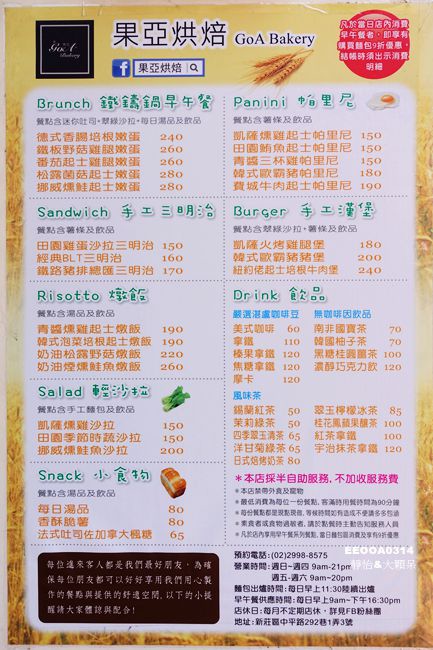 GOA
Bakery
果亞烘焙 GoA Bakery
果亞烘焙
凡於當日店內消費
早午餐者,即享有
購買麵包9折優惠,
結帳時須出示消費
明細
Brunch 鐵鑄鍋早午餐
餐點含迷你吐司+翠綠沙拉+每日湯品及飲品
德式香腸培根嫩蛋 240
鐵板野菇雞腿嫩蛋 260
番茄起士雞腿嫩蛋 260
松露菌菇起士嫩蛋 280
挪威燻鮭起士嫩蛋 280
Panini 帕里尼
餐點含薯條及飲品
凱薩燻雞起士帕里尼 150
田園鮪魚起士帕里尼 150
青醬三杯雞帕里尼 150
韓式歐霸豬帕里尼 180
費城牛肉起士帕里尼 190
Sandwich 手工三明治
餐點含薯條及飲品
田園雞蛋沙拉三明治 150
經典BLT三明治 160
鐵路豬排總匯三明治 170
Burger 手工漢堡
餐點含翠綠沙拉+薯條及飲品
凱薩火烤雞腿堡 180
韓式歐霸豬豬堡 200
紐約佬起士培根牛肉堡 240
Risotto 燉飯
餐點含湯品及飲品
青醬燻雞起士燉飯 190
韓式泡菜培根起士燉飯 190
奶油松露野菇燉飯 220
奶油煙燻鮭魚燉飯 260
Drink 飲品
嚴選湛盧咖啡豆
美式咖啡 60
拿鐵 110
榛果拿鐵 120
焦糖拿鐵 120
摩卡 120
無咖啡因飲品
南非國寶茶 70
韓國柚子茶 70
黑糖桂圓薑茶 100
濃醇巧克力飲 120
風味茶
錫蘭紅茶 50
茉莉綠茶 50
四季翠玉清茶 65
洋甘菊綠茶 65
日式焙烤奶茶 80
翠玉檸檬冰茶 85
桂花鳳蘋果釀茶 100
紅茶拿鐵 100
宇治抹茶拿鐵 120
Salad 輕沙拉
餐點含手工麵包及飲品
凱薩燻雞沙拉 150
田園季節時蔬沙拉 150
挪威燻鮭魚沙拉 200
Snack 小食物
餐點含湯品及飲品
每日湯品 80
香酥脆薯 80
法式吐司佐加拿大楓糖 65
*本店採半自助服務,不加收服務費
*本店禁帶外食及寵物
*最低消費為每位一份餐點,客滿時用餐時間為90分鐘
*每份餐點都是現點現做,等候時間如有造成不便請多多包涵
*素食者或食物過敏者,請於點餐時主動告知服務人員
*凡於店內享用早午餐系列餐點,當日麵包區消費及享有9折優惠
每位進來客人都是我們最好朋友,為確
保每位朋友都可以好好享用我們用心製
作的餐點與提供的舒適空間,以下的小提
醒請大家體諒與配合!
預約電話:(02)2998-8575
營業時間:週日~週四 9am~21pm
週五-週六 9am~20pm
麵包出爐時間:每日早上11:30陸續出爐
早午餐供應時間:每日早上9am~下午16:30pm
店休日:每月不定期店休,詳見FB粉絲團
地址:新莊區中平路292巷1弄3號
EEOOA0314
靜怡&大顆呆